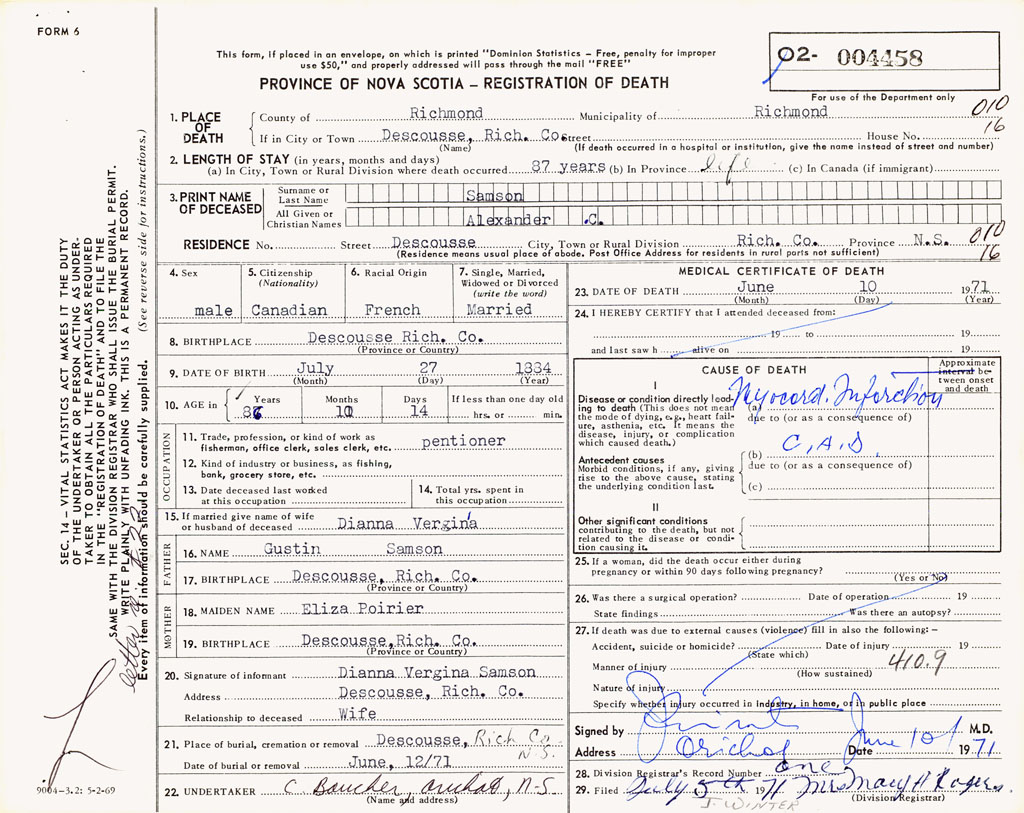 FORM 6
This form, if placed in an envelope, on which is printed "Dominion Statistics – Free, penalty for improper
use $50," and properly addressed will pass through the mail "FREE"
PROVINCE OF NOVA SCOTIA – REGISTRATION OF DEATH
02- 004458
For use of the Department only
1. PLACE OF DEATH County of Richmond Municipality of Richmond 010
If in City or Town Descousse, Rich. Co. Street House No. 16
(Name) (If death occurred in a hospital or institution, give the name instead of street and number)
2. LENGTH OF STAY (in years, months and days)
(a) In City, Town or Rural Division where death occurred 87 years (b) In Province life (c) In Canada (if immigrant)
3. PRINT NAME OF DECEASED Surname or Last Name Samson
All Given or Christian Names Alexander .C.
RESIDENCE No. Street Descousse City, Town or Rural Division Rich. Co. Province N.S. 010
(Residence means usual place of abode. Post Office Address for residents in rural parts not sufficient) 16
4. Sex male
5. Citizenship (Nationality) Canadian
6. Racial Origin French
7. Single, Married, Widowed or Divorced (write the word) Married
8. BIRTHPLACE Descousse Rich. Co.
(Province or Country)
9. DATE OF BIRTH July 27 1884
(Month) (Day) (Year)
10. AGE in Years Months Days If less than one day old
86 10 14 hrs. or min.
OCCUPATION
11. Trade, profession, or kind of work as
fisherman, office clerk, sales clerk, etc. pentioner
12. Kind of industry or business, as fishing,
bank, grocery store, etc.
13. Date deceased last worked
at this occupation
14. Total yrs. spent in
this occupation
15. If married give name of wife
or husband of deceased Dianna Vergina
FATHER
16. NAME Gustin Samson
17. BIRTHPLACE Descousse, Rich. Co.
(Province or Country)
MOTHER
18. MAIDEN NAME Eliza Poirier
19. BIRTHPLACE Descousse, Rich. Co.
(Province or Country)
20. Signature of informant Dianna Vergina Samson
Address Descousse, Rich. Co.
Relationship to deceased Wife
21. Place of burial, cremation or removal Descousse, Rich Co. N.S.
Date of burial or removal June, 12/71
22. UNDERTAKER C. Boucher, Arichat, N-S
(Name and address)
MEDICAL CERTIFICATE OF DEATH
23. DATE OF DEATH June 10 1971
(Month) (Day) (Year)
24. I HEREBY CERTIFY that I attended deceased from:
19 to 19
and last saw h alive on 19
CAUSE OF DEATH
Approximate interval between onset and death
I
Disease or condition directly leading to death (This does not mean
the mode of dying, e.g., heart failure, asthenia, etc. It means the
disease, injury, or complication
which caused death.)
(a) Myocard. Infarction
due to (or as a consequence of)
Antecedent causes
Morbid conditions, if any, giving
rise to the above cause, stating
the underlying condition last.
(b) C.A.D.
due to (or as a consequence of)
(c)
II
Other significant conditions
contributing to the death, but not
related to the disease or condition causing it.
25. If a woman, did the death occur either during
pregnancy or within 90 days following pregnancy?
(Yes or No)
26. Was there a surgical operation? Date of operation 19
State findings Was there an autopsy?
27. If death was due to external causes (violence) fill in also the following: –
Accident, suicide or homicide? Date of injury 19
(State which)
Manner of injury 410.9
(How sustained)
Nature of injury
Specify whether injury occurred in industry, in home, or in public place
Signed by M.D.
Address Arichat Date June 10 1971
28. Division Registrar's Record Number one
29. Filed July 5th 1971 Mrs Mary H Rogers
(Division Registrar)
J. WINTER
SEC. 14 – VITAL STATISTICS ACT MAKES IT THE DUTY
OF THE UNDERTAKER OR PERSON ACTING AS UNDER-
TAKER TO OBTAIN ALL THE PARTICULARS REQUIRED
IN THE "REGISTRATION OF DEATH" AND TO FILE THE
SAME WITH THE DIVISION REGISTRAR WHO SHALL ISSUE THE BURIAL PERMIT.
WRITE PLAINLY WITH UNFADING INK. THIS IS A PERMANENT RECORD.
Every item of information should be carefully supplied. (See reverse side for instructions.)
letter
9004–3.2: 5-2-69